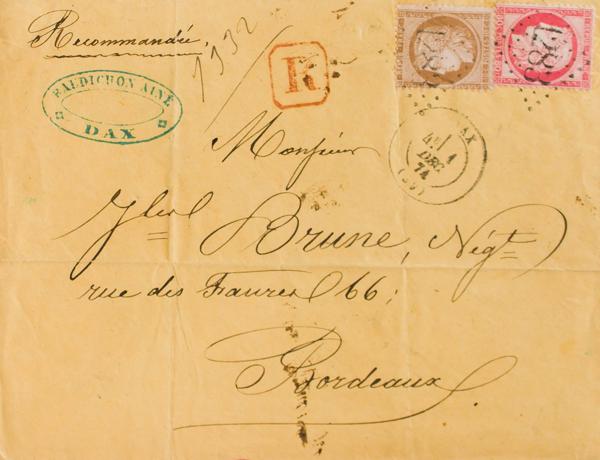 Recommandée.
1932
R
BAUDICHON AINÉ
DAX
1283
1283
AX
1
DEC
74
(39)
Monsieur
Brune, Négt
rue des Faures 66;
Bordeaux